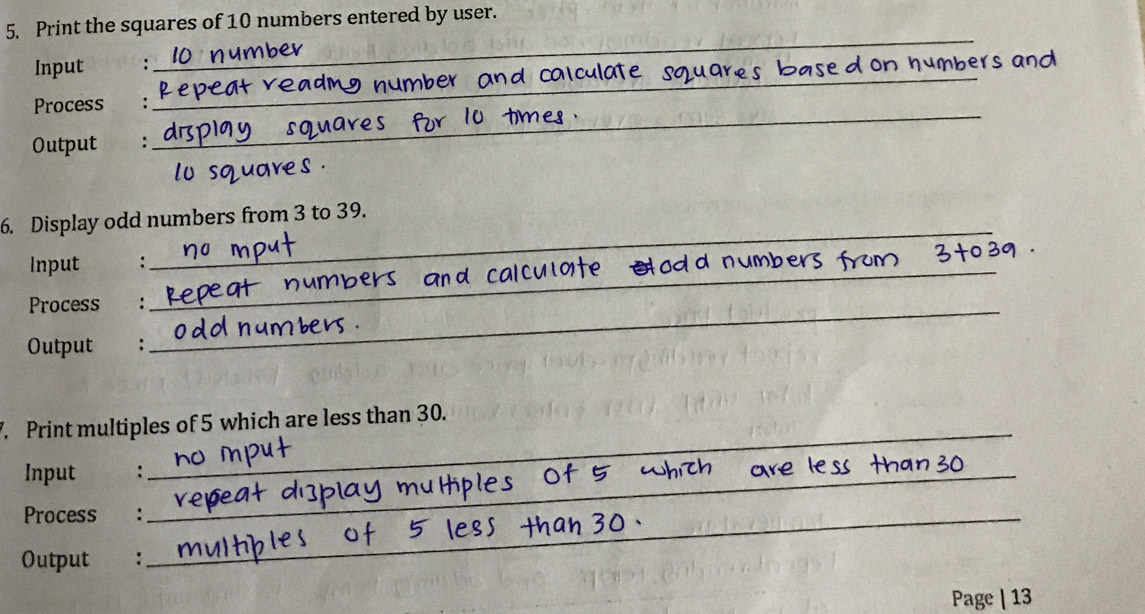 5. Print the squares of 10 numbers entered by user.
Input : 10 number
Process : Repeat reading number and calculate squares based on numbers and
Output : display squares for 10 times.
10 squares.
6. Display odd numbers from 3 to 39.
Input : no input
Process : Repeat numbers and calculate odd numbers from 3 to 39.
Output : odd numbers.
7. Print multiples of 5 which are less than 30.
Input : no input
Process : repeat display multiples of 5 which are less than 30
Output : multiples of 5 less than 30.
Page | 13